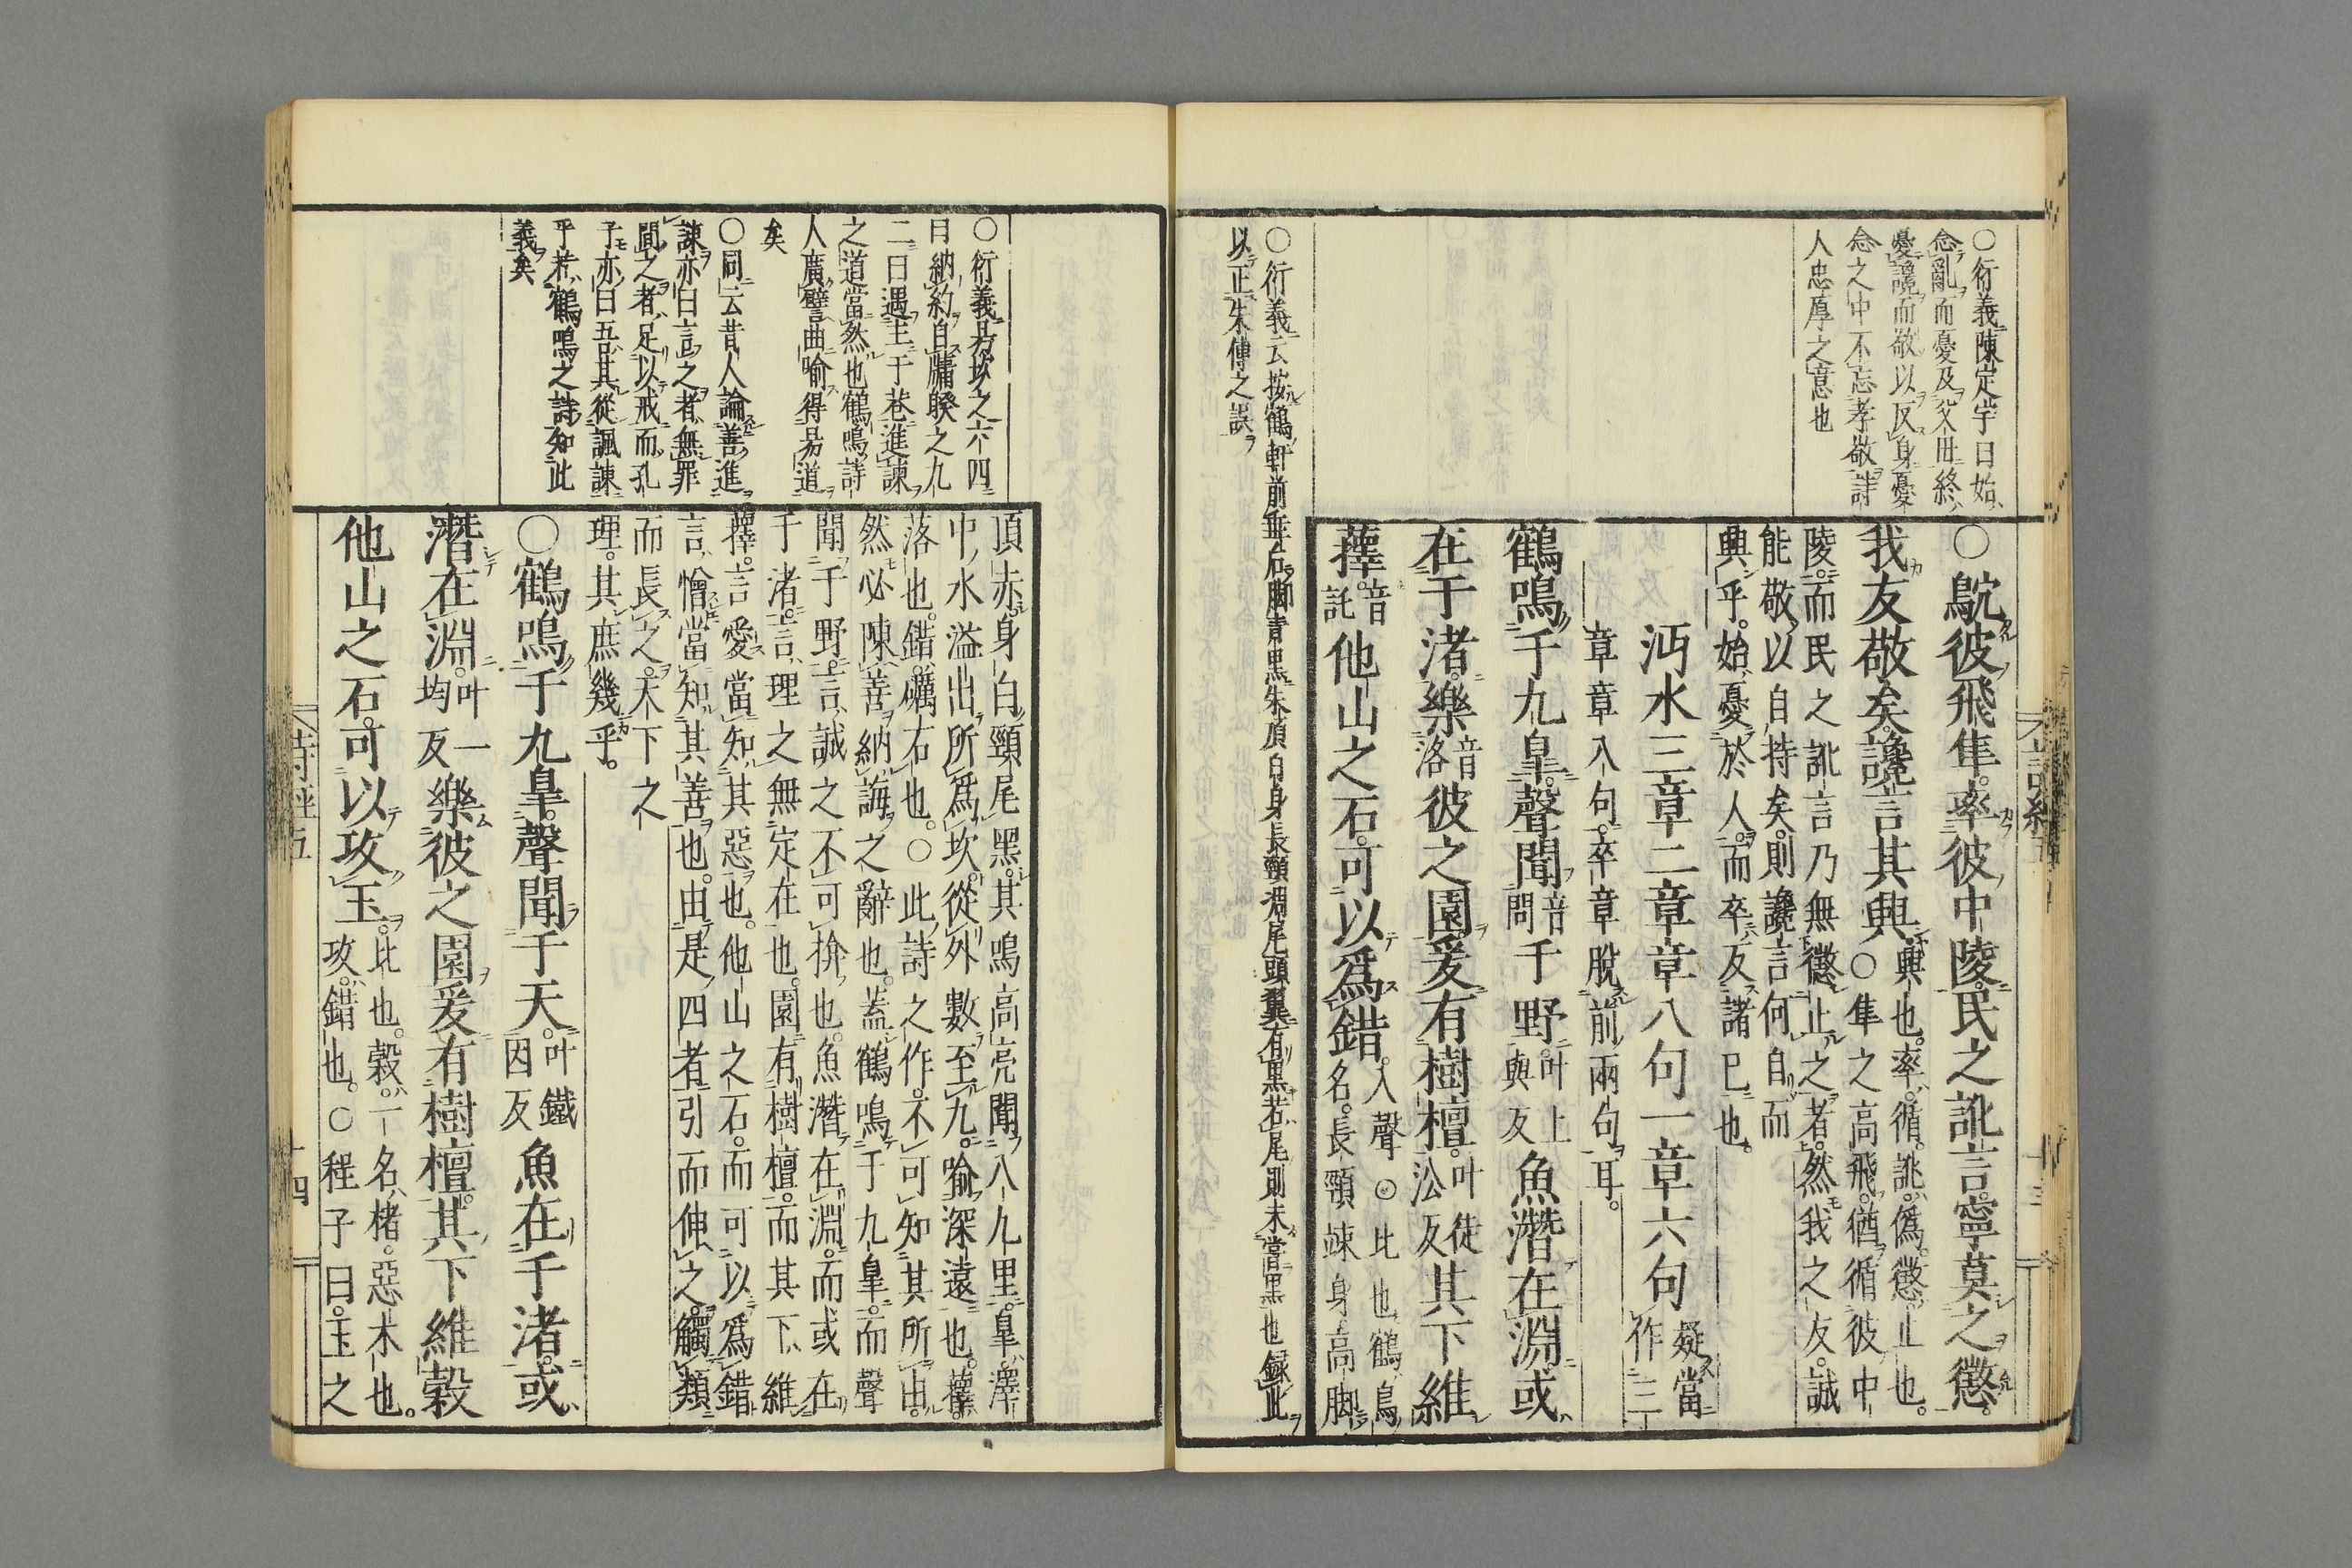 ○衍義陳定宇曰始
念亂而憂及父母終
憂讒而敬以反身憂
念之中不忘孝敬詩
人忠厚之意也
○鴥彼飛隼。率彼中陵。民之訛言。寧莫之懲。
我友敬矣。讒言其興。興也。率。循。訛。僞。懲。止也。
○隼之高飛。猶循彼中
陵。而民之訛言乃無懲止之者。然我之友。誠
能敬以自持矣。則讒言何自而
興乎。始憂於人。而卒反諸己也。
沔水三章二章章八句一章六句疑當
作三
章章八句。卒章脫前兩句耳。
鶴鳴于九皐。聲聞音
問于野。叶上
與反魚潛在淵。或
在于渚。樂音
洛彼之園。爰有樹檀。叶徒
沿反其下維
蘀。音
託他山之石。可以爲錯。入聲○比也鶴鳥
名。長頸竦身高脚
○衍義云按鶴軒前垂後脚青黑朱頂白身長頸凋尾頭翼有黑若尾則未嘗黑也錄此
以正朱傳之誤
詩經五
十三
○衍義易坎之六四
曰納約自牖睽之九
二曰遇主于巷進諫
之道當然也鶴鳴詩
人廣譬曲喻得易道
矣
○同云昔人論善進
諫亦曰言之者無罪
聞之者足以戒而孔
子亦曰吾其從諷諫
乎若鶴鳴之詩知此
義矣
頂赤身白頸尾黑。其鳴高亮聞八九里。皐。澤
中水溢出所爲坎。從外數至九。喻深遠也。蘀。
落也。錯。礪石也。○此詩之作。不可知其所由。
然必陳善納誨之辭也。蓋鶴鳴于九皐。而聲
聞于野。言誠之不可揜也。魚潛在淵。而或在
于渚。言理之無定在也。園有樹檀。而其下維
蘀。言愛當知其惡也。他山之石。而可以爲錯
言憎當知其善也。由是四者引而伸之。觸類
而長之。天下之
理。其庶幾乎。
○鶴鳴于九皐。聲聞于天。叶鐵
因反魚在于渚。或
潛在淵。叶一
均反樂彼之園。爰有樹檀。其下維榖
他山之石。可以攻玉。比也。榖。一名楮。惡木也。
攻。錯也。○程子曰。玉之
詩經五
十四